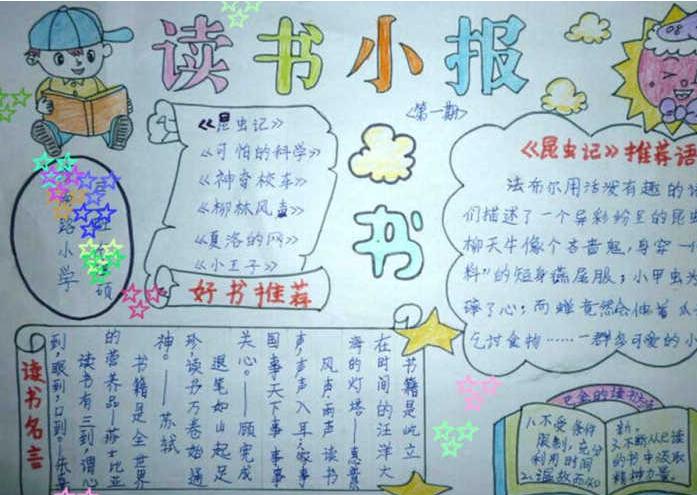 读书小报
<第一期>
《昆虫记》
《可怕的科学》
《神奇校车》
《柳林风声》
《夏洛的网》
《小王子》
好书推荐
路小学
书
《昆虫记》推荐语
法布尔用活泼有趣的
们描述了一个异彩纷呈的昆
柳天牛像个吝啬鬼,身穿一
料”的短身燕尾服;小甲虫
碎了心;而蝉竟然会伸着
乞讨食物……一群多可爱的小
读书名言
书籍是屹立
在时间的汪洋大
海的灯塔。
风声雨声读书
声,声声入耳;家事
国事天下事,事事
关心。——顾宪成
退笔如山起足
珍,读书万卷始通
神。——苏轼
书籍是全世界
的营养品——莎士比亚
读书有三到,谓心
到,眼到,口到。
的读书方法
1.不受条件
限制,充分
利用时间
新。
3.不断从已读
的书中汲取
精神力量。